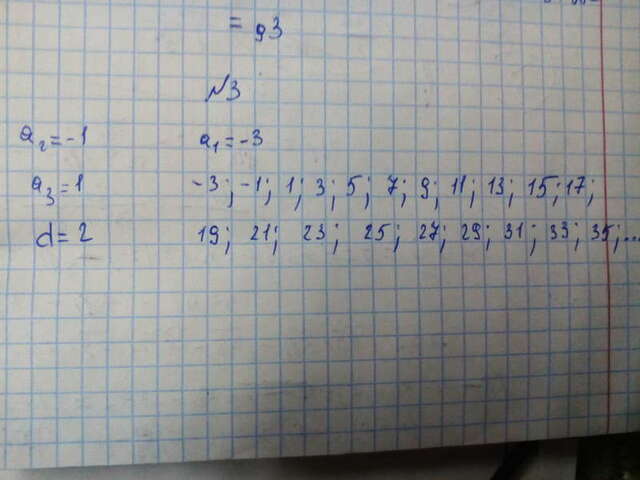 = 93
№3
a₂=-1 a₁=-3
a₃=1 -3; -1; 1; 3; 5; 7; 9; 11; 13; 15; 17;
d=2 19; 21; 23; 25; 27; 29; 31; 33; 35; ...